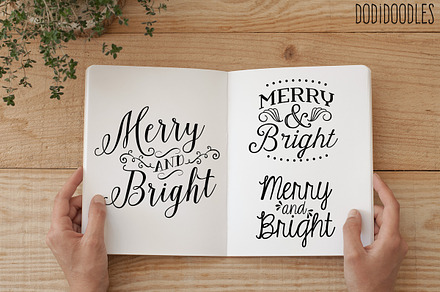 DODIDOODLES
Merry
AND
Bright
MERRY
&
Bright
Merry
and
Bright